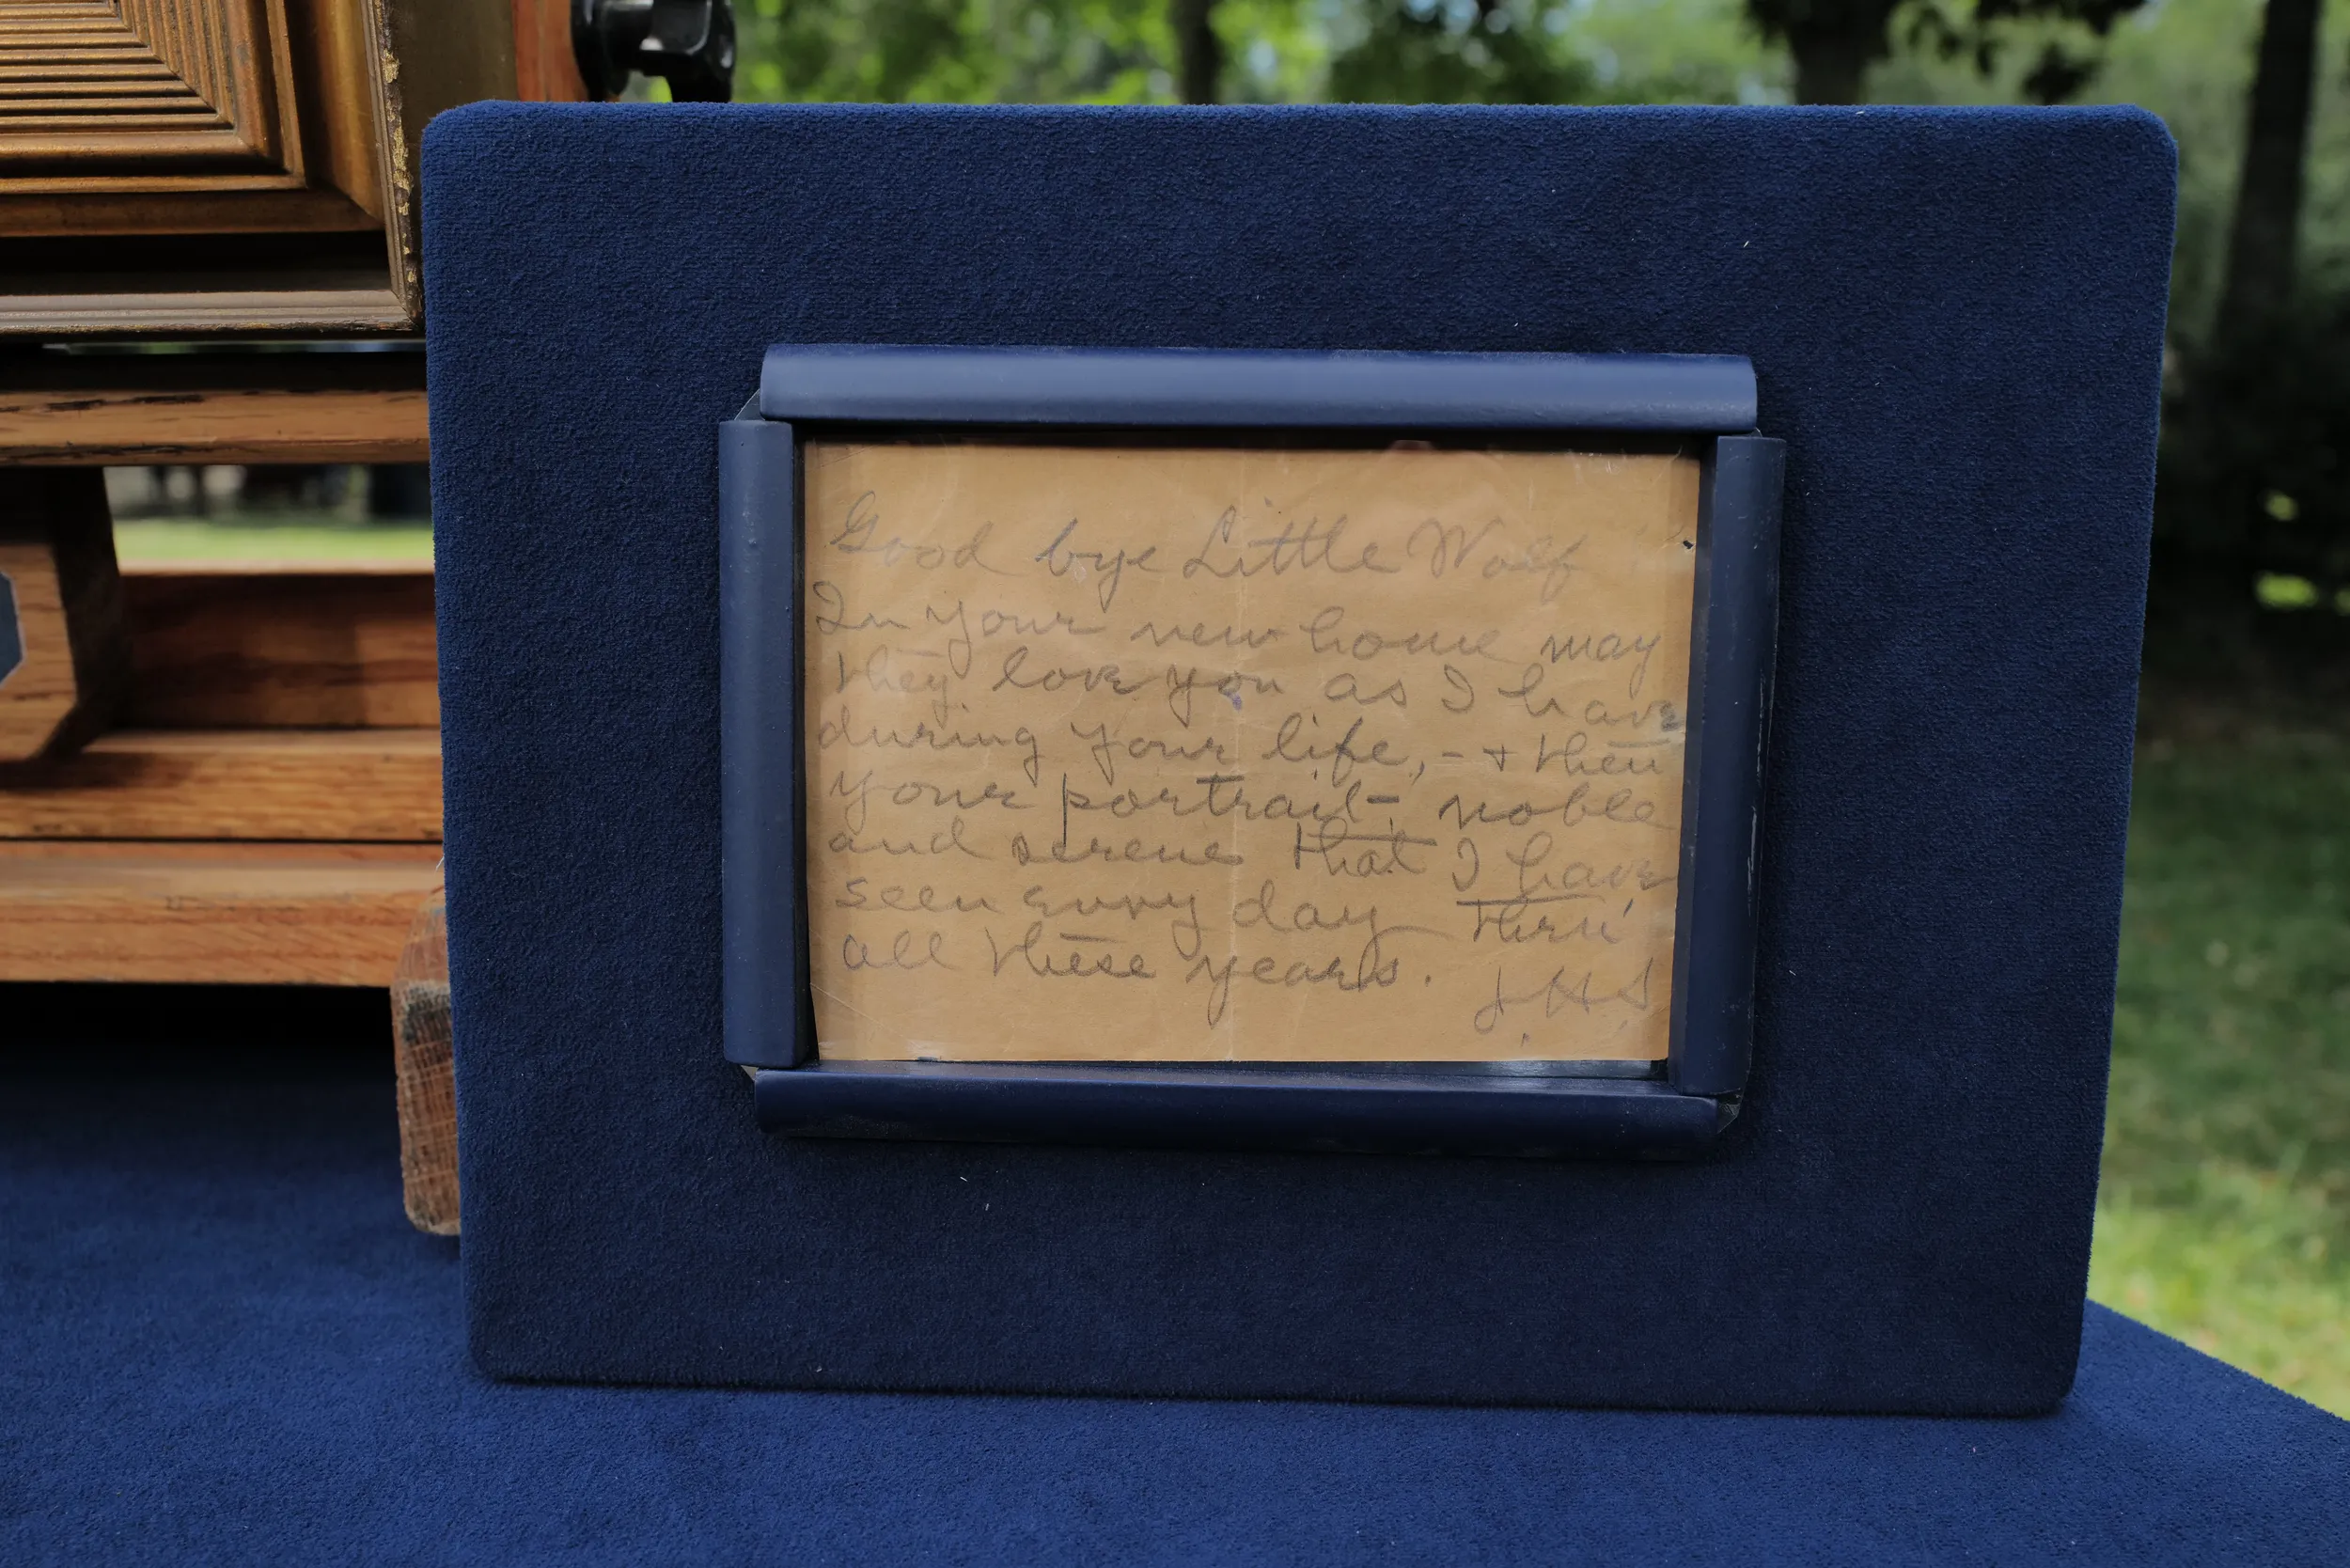 Good bye Little Wolf
In your new home may
they love you as I have
during your life, - + then
your portrait - noble
and serene that I have
seen every day thru'
all these years.
J.H.S.